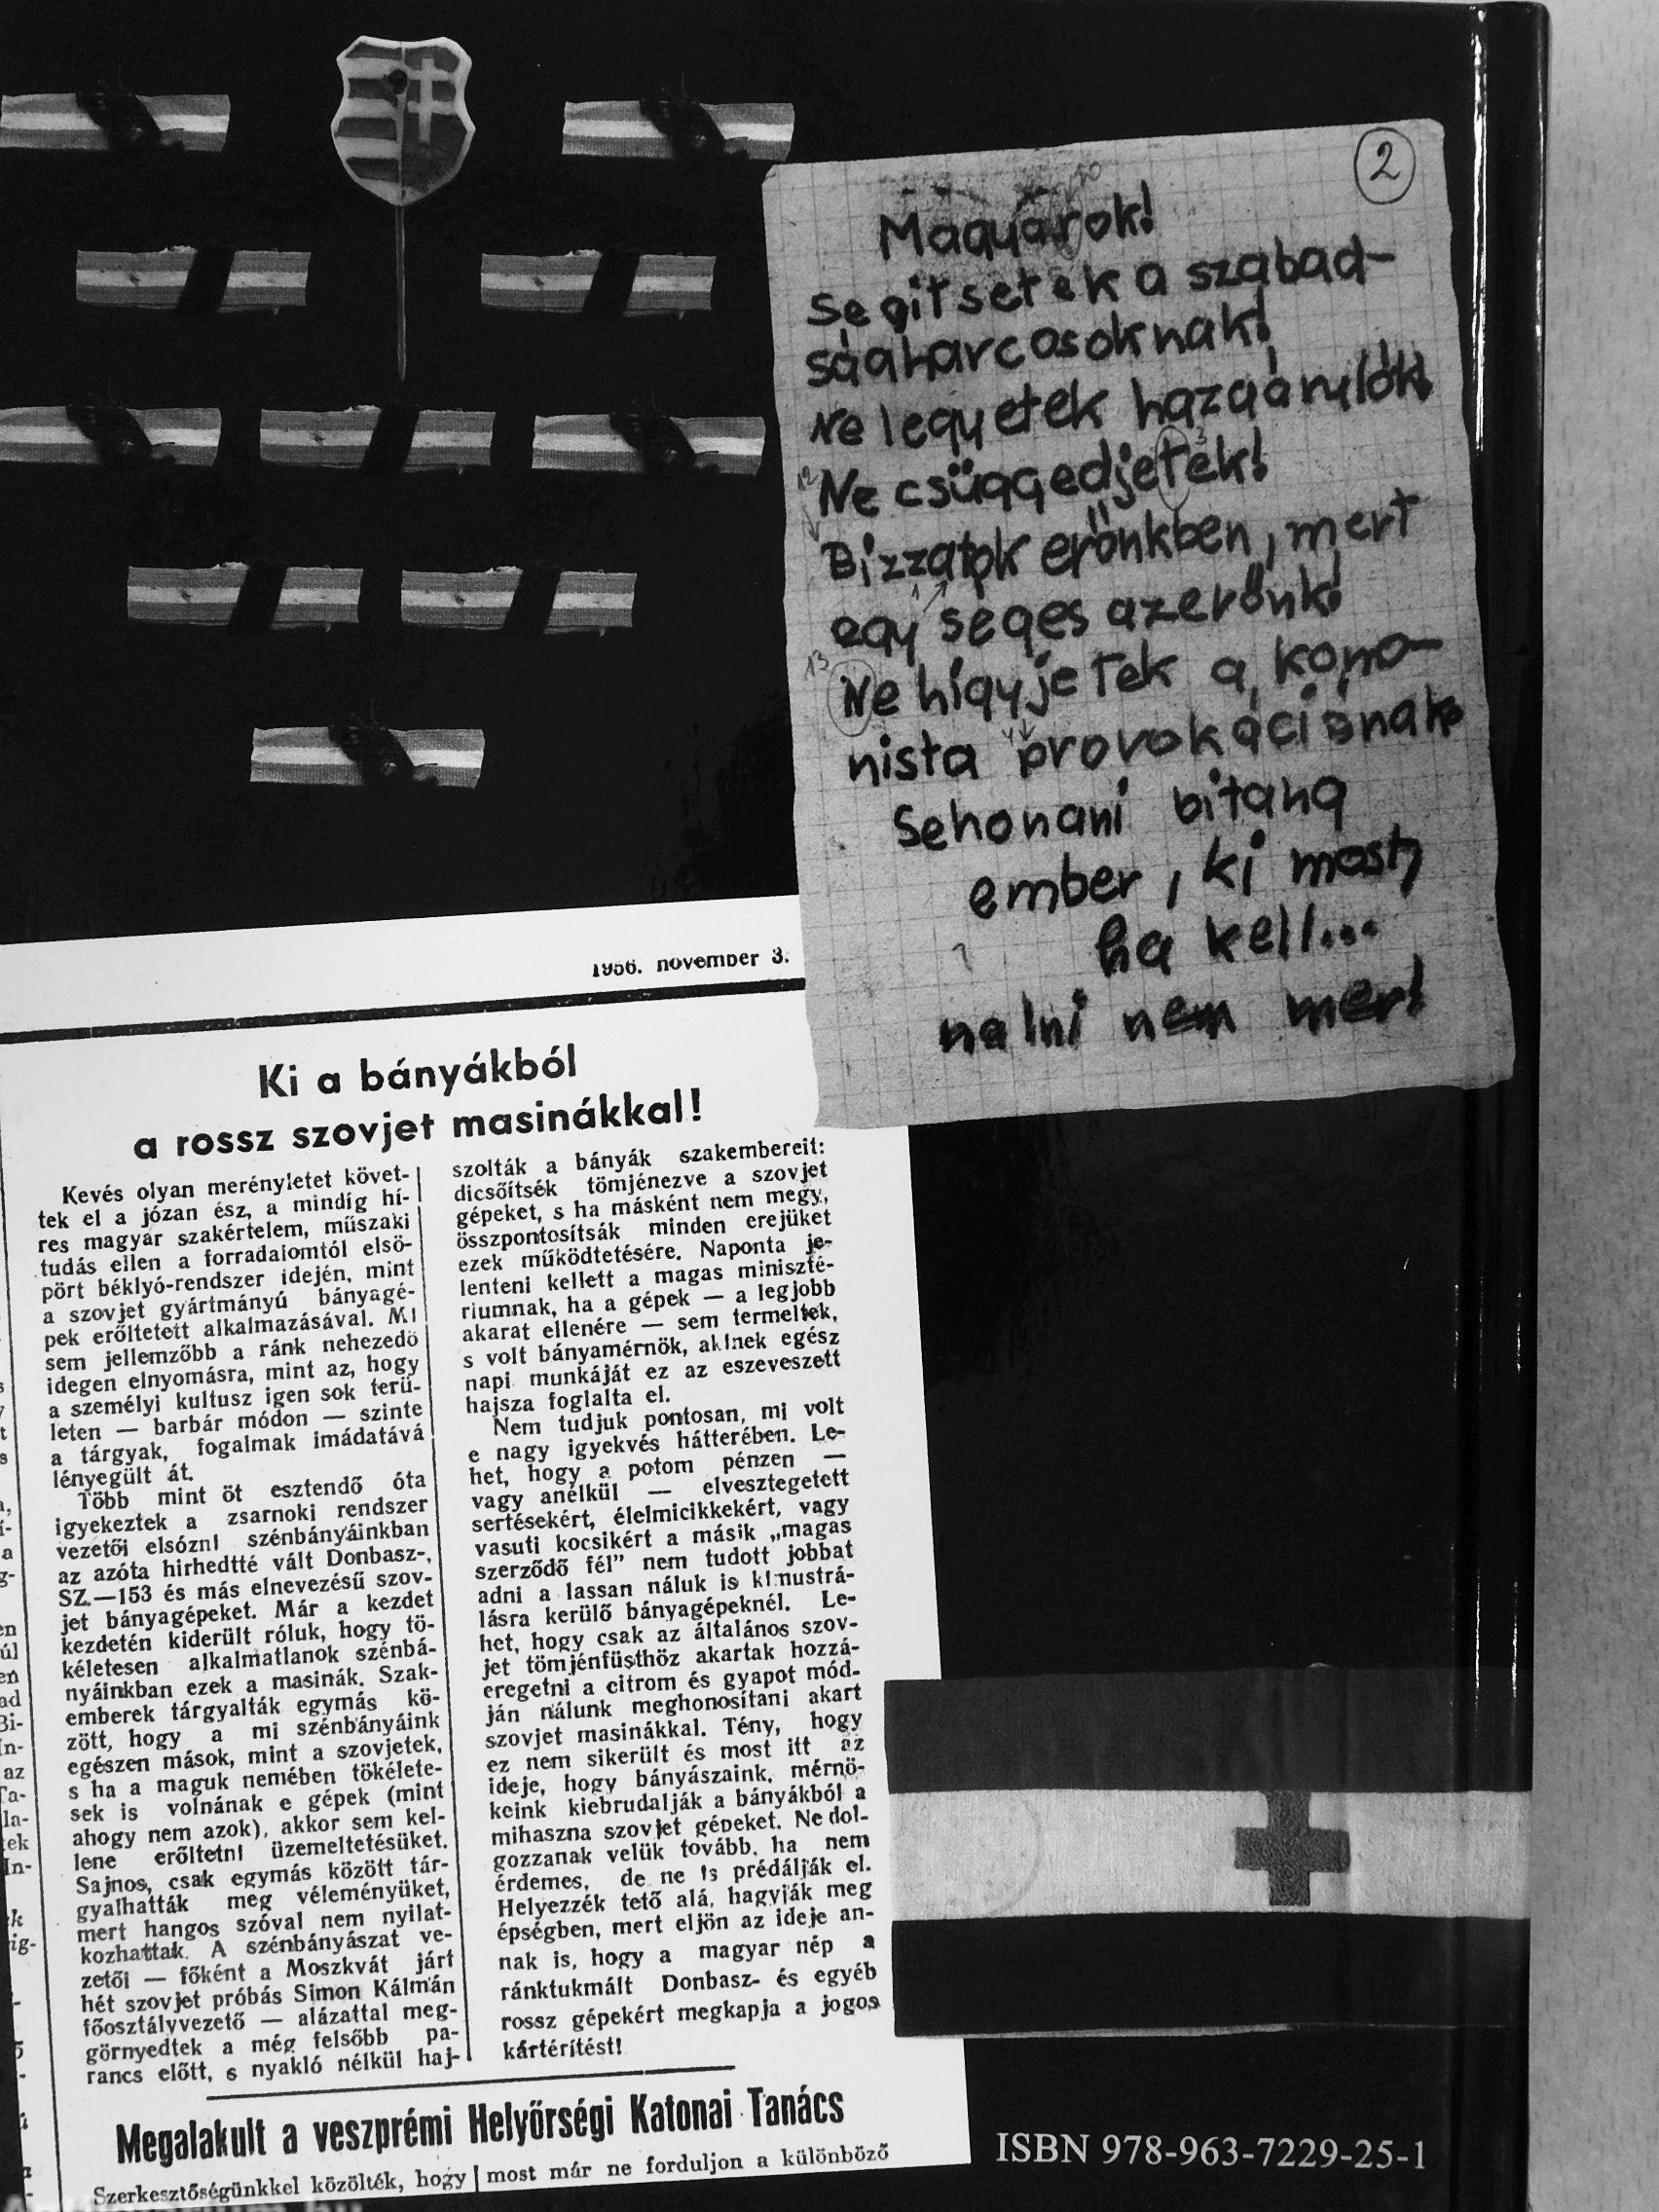 2
Magyarok!
Segitsetek a szabad-
ságharcosoknak!
Ne legyetek hazaárulók
Ne csüggedjetek!
Bizzatok erőnkben, mert
egy séges az erőnk!
Ne higyjetek a komo-
nista provokációnak
Sehonani bitang
ember, ki most,
ha kell...
nalni nem mer!
1956. november 3.
Ki a bányákból
a rossz szovjet masinákkal!
Kevés olyan merényletet követ-
tek el a józan ész, a mindíg hí-
res magyar szakértelem, műszaki
tudás ellen a forradalomtól elsö-
pört béklyó-rendszer idején, mint
a szovjet gyártmányú bányagé-
pek erőltetett alkalmazásával. Mi
sem jellemzőbb a ránk nehezedő
idegen elnyomásra, mint az, hogy
a személyi kultusz igen sok terü-
leten — barbár módon — szinte
a tárgyak, fogalmak imádatává
lényegült át.
Több mint öt esztendő óta
igyekeztek a zsarnoki rendszer
vezetői elsózni szénbányáinkban
az azóta hirhedtté vált Donbasz-,
SZ.—153 és más elnevezésű szov-
jet bányagépeket. Már a kezdet
kezdetén kiderült róluk, hogy tö-
kéletesen alkalmatlanok szénbá-
nyáinkban ezek a masinák. Szak-
emberek tárgyalták egymás kö-
zött, hogy a mi szénbányáink
egészen mások, mint a szovjetek,
s ha a maguk nemében tökélete-
sek is volnának e gépek (mint
ahogy nem azok), akkor sem kel-
lene erőltetni üzemeltetésüket.
Sajnos, csak egymás között tár-
gyalhatták meg véleményüket,
mert hangos szóval nem nyilat-
kozhattak. A szénbányászat ve-
zetői — főként a Moszkvát járt
hét szovjet próbás Simon Kálmán
főosztályvezető — alázattal meg-
görnyedtek a még felsőbb pa-
rancs előtt, s nyakló nélkül haj-
szolták a bányák szakembereit:
dicsőítsék tömjénezve a szovjet
gépeket, s ha másként nem megy,
összpontosítsák minden erejüket
ezek működtetésére. Naponta je-
lenteni kellett a magas miniszté-
riumnak, ha a gépek — a legjobb
akarat ellenére — sem termeltek,
s volt bányamérnök, akinek egész
napi munkáját ez az eszeveszett
hajsza foglalta el.
Nem tudjuk pontosan, mi volt
e nagy igyekvés hátterében. Le-
het, hogy a potom pénzen —
vagy anélkül — elvesztegetett
sertésekért, élelmicikkekért, vagy
vasuti kocsikért a másik „magas
szerződő fél” nem tudott jobbat
adni a lassan náluk is kimustrá-
lásra kerülő bányagépeknél. Le-
het, hogy csak az általános szov-
jet tömjénfüsthöz akartak hozzá-
eregetni a citrom és gyapot mód-
ján nálunk meghonosítani akart
szovjet masinákkal. Tény, hogy
ez nem sikerült és most itt az
ideje, hogy bányászaink, mérnö-
keink kiebrudalják a bányákból a
mihaszna szovjet gépeket. Ne dol-
gozzanak velük tovább, ha nem
érdemes, de ne is prédálják el.
Helyezzék tető alá, hagyják meg
épségben, mert eljön az ideje an-
nak is, hogy a magyar nép a
ránktukmált Donbasz- és egyéb
rossz gépekért megkapja a jogos
kártérítést!
Megalakult a veszprémi Helyőrségi Katonai Tanács
Szerkesztőségünkkel közölték, hogy
most már ne forduljon a különböző
ISBN 978-963-7229-25-1